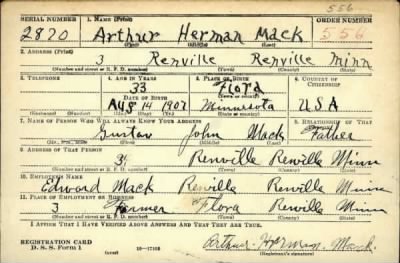 556
SERIAL NUMBER 1. NAME (Print) ORDER NUMBER
2820 Arthur Herman Mack 556
(First) (Middle) (Last)
2. ADDRESS (Print)
3 Renville Renville Minn
(Number and street or R. F. D. number) (Town) (County) (State)
3. TELEPHONE 4. AGE IN YEARS 5. PLACE OF BIRTH 6. COUNTRY OF CITIZENSHIP
33 Flora
DATE OF BIRTH (Town or county)
Aug 14 1907 Minnesota USA
(Exchange) (Number) (Mo.) (Day) (Yr.) (State or country)
7. NAME OF PERSON WHO WILL ALWAYS KNOW YOUR ADDRESS 8. RELATIONSHIP OF THAT PERSON
Gustav John Mack Father
(Mr., Mrs., Miss) (First) (Middle) (Last)
9. ADDRESS OF THAT PERSON
3 Renville Renville Minn
(Number and street or R. F. D. number) (Town) (County) (State)
10. EMPLOYER'S NAME
Edward Mack Renville Renville Minn
11. PLACE OF EMPLOYMENT OR BUSINESS
3 Farmer Flora Renville Minn
(Number and street or R. F. D. number) (Town) (County) (State)
I AFFIRM THAT I HAVE VERIFIED ABOVE ANSWERS AND THAT THEY ARE TRUE.
REGISTRATION CARD
D. S. S. Form 1 (over) 16—17105 Arthur Herman Mack.
(Registrant's signature)